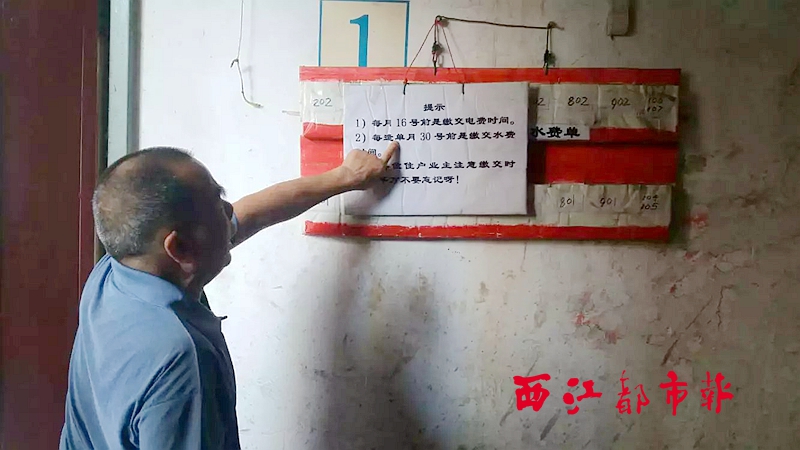 1
202
802
902
水费单
提示
1）每月 16 号前是缴交电费时间。
2）每逢单月 30 号前是缴交水费
时间。
住户业主注意缴交时
千万不要忘记呀！
801
901
105
西江都市报